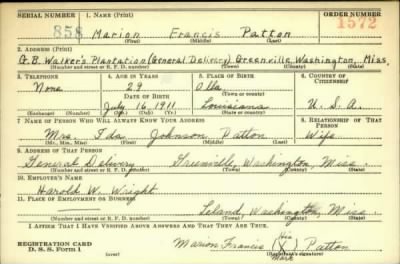 SERIAL NUMBER 1. NAME (Print) ORDER NUMBER
858 Marion Francis Patton 1572
(First) (Middle) (Last)
2. ADDRESS (Print)
G.B. Walker's Plantation (General Delivery) Greenville, Washington, Miss.
(Number and street or R. F. D. number) (Town) (County) (State)
3. TELEPHONE 4. AGE IN YEARS 5. PLACE OF BIRTH 6. COUNTRY OF CITIZENSHIP
None 29 Olla
DATE OF BIRTH (Town or county)
July 16, 1911 Louisiana U. S. A.
(Exchange) (Number) (Mo.) (Day) (Yr.) (State or country)
7. NAME OF PERSON WHO WILL ALWAYS KNOW YOUR ADDRESS 8. RELATIONSHIP OF THAT PERSON
Mrs. Ida Johnson Patton Wife
(Mr., Mrs., Miss) (First) (Middle) (Last)
9. ADDRESS OF THAT PERSON
General Delivery Greenville, Washington, Miss.
(Number and street or R. F. D. number) (Town) (County) (State)
10. EMPLOYER'S NAME
Harold W. Wright
11. PLACE OF EMPLOYMENT OR BUSINESS
Leland, Washington, Miss.
(Number and street or R. F. D. number) (Town) (County) (State)
I AFFIRM THAT I HAVE VERIFIED ABOVE ANSWERS AND THAT THEY ARE TRUE.
REGISTRATION CARD
D. S. S. Form 1
(over)
His
Marion Francis (X) Patton
Mark
(Registrant's signature)